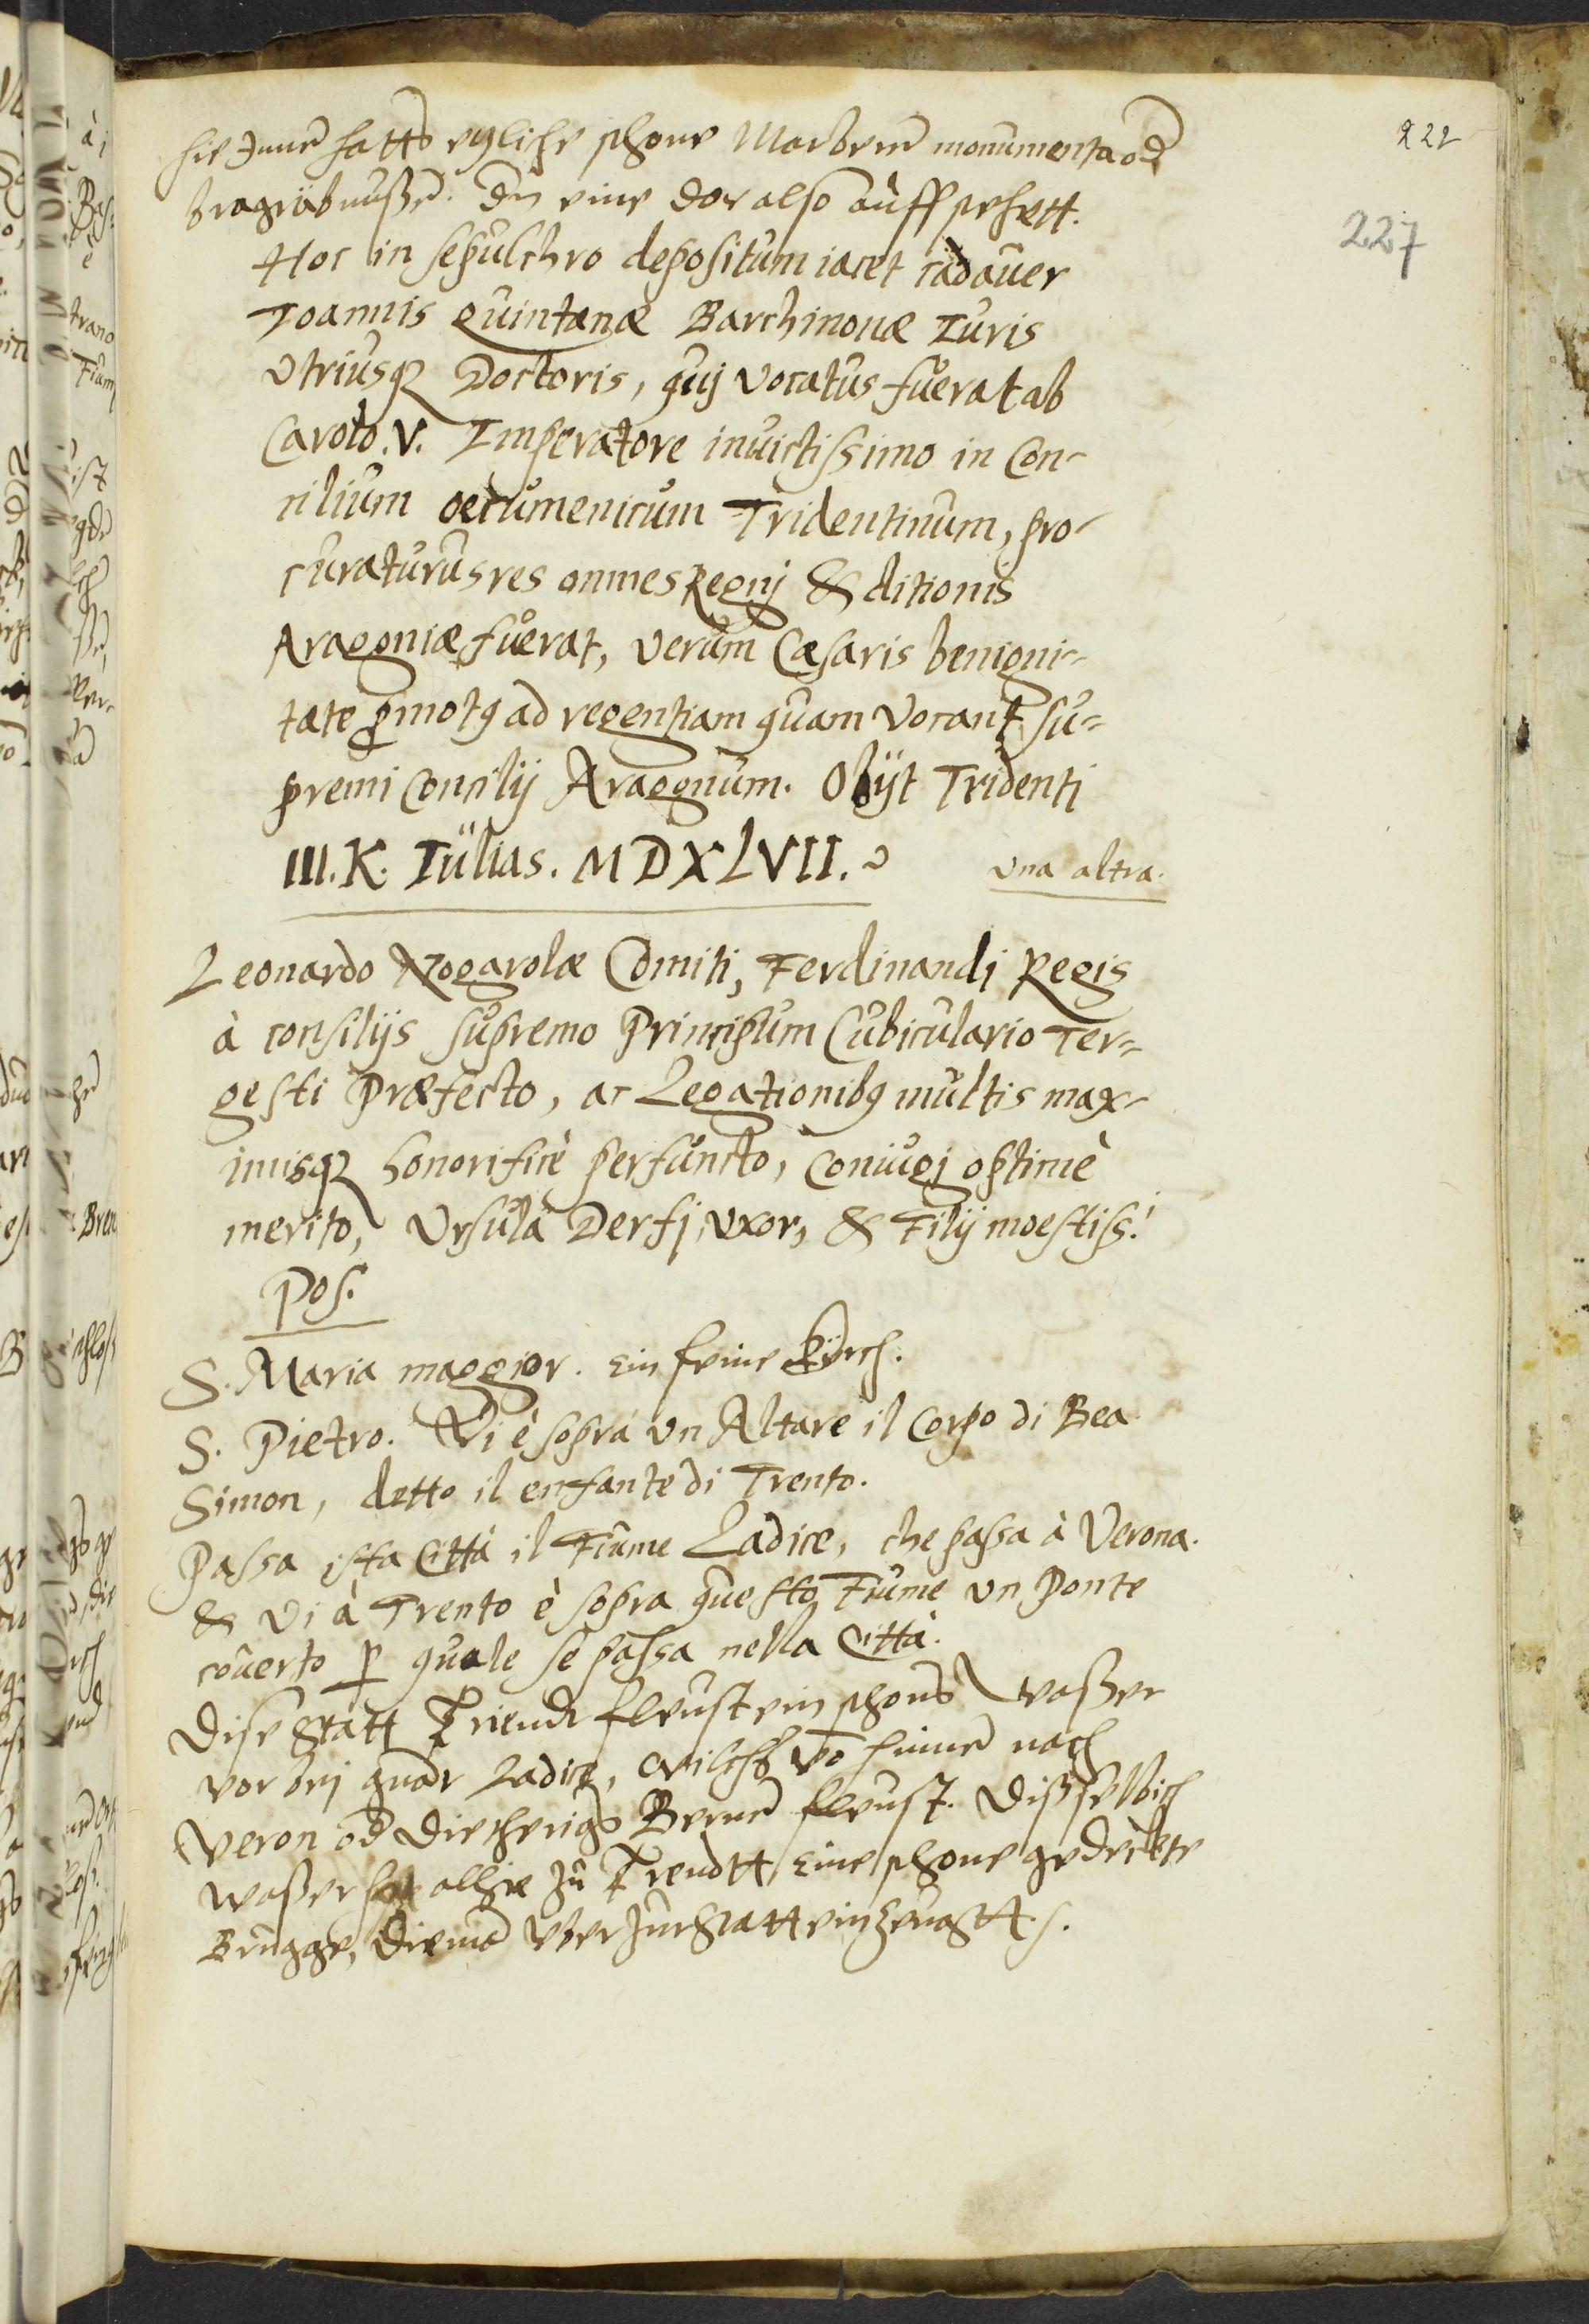 222
227
hie Inne hatts egliche schone Marbere monumenta od
begräbnussen. In eine der also auff stehett.
Hoc in sepulchro depositum iacet cadauer
Ioannis Quintanæ Barchinonæ Iuris
Vtriusq Doctoris, quj vocatus fuerat ab
Carolo. V. Imperatore inuictissimo in Con-
cilium oecumenicum Tridentinum, pro-
curaturus res omnes Regnj & ditionis
Aragoniæ fuerat, verum Cæsaris benigni-
tate pmotg ad regentiam quam vocant su-
premi Concilij Aragonum. Obijt Tridenti
III. K. Iulias. MDXLVII.
Vna altra.
Leonardo Nogarolæ Comiti, Ferdinandj Regis
à consilijs supremo Principum Cubiculario Ter-
gesti Præfecto, ac Legationibg multis max-
imisq honorificè perfuncto, Coniugj optimè
merito, Vrsula Derfj, vxor, & Filij moestiss.i
Pos.
S. Maria maggior. Ein feine Kirch.
S. Pietro. Vi è sopra vn Altare il Corpo di Bea
Simon, detto il enfante di Trento.
Passa ista Città il Fiume Ladice, che passa à Verona.
& Vi à Trento è sopra questo Fiume vn Ponte
couerto p quale se passa nella Città.
Dise Statt Triendt fleust ein schons wasser
vor bej gnadt Ladice, wilchs vo hinnen nach
Veron od Bernn fleust. Disselbich
wasser hat alhie zu Trendtt Eine schone gedeckte
Brugge, Die man vber zur Statt einzeugtt.